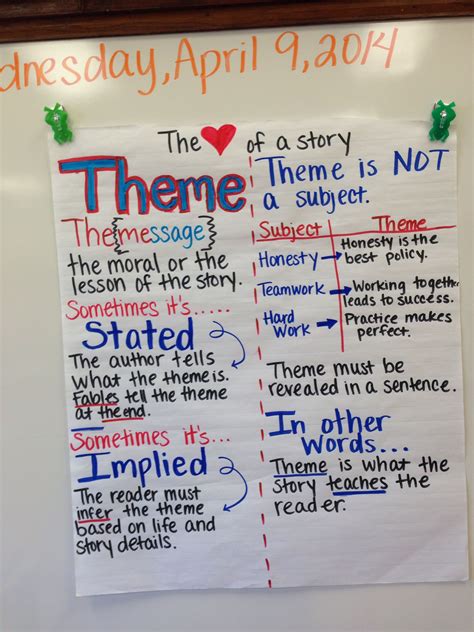 dnesday, April 9, 2014
The ❤ of a story
Theme
The{message}
the moral or the
lesson of the story.
Sometimes it's.....
Stated
The author tells
what the theme is.
Fables tell the theme
at the end.
Sometimes it's...
Implied
The reader must
infer the theme
based on life and
story details.
Theme is NOT
a subject.
Subject Theme
Honesty → Honesty is the
best policy.
Teamwork → Working togeth
leads to success.
Hard
Work → Practice makes
perfect.
Theme must be
revealed in a sentence.
In other
Words...
Theme is what the
story teaches the
reader.